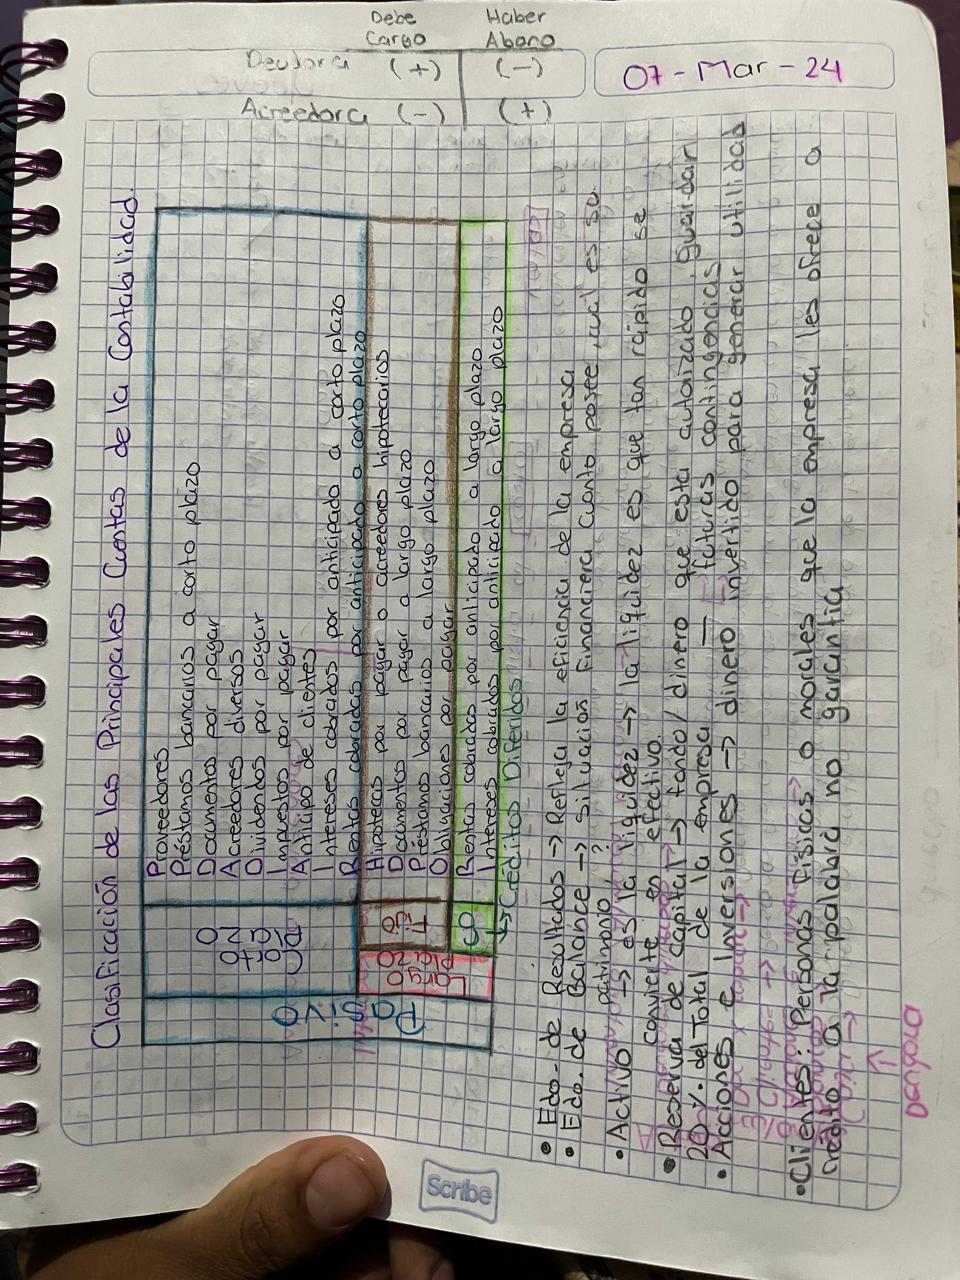 Clasificación de las Principales Cuentas de la Contabilidad.
Pasivo
Corto
Plazo
Proveedores
Préstamos bancarios a corto plazo
Documentos por pagar
Acreedores diversos
Dividendos por pagar
Impuestos por pagar
Anticipo de clientes
Intereses cobrados por anticipado a corto plazo
Rentas cobradas por anticipado a corto plazo
Largo
Plazo
Fijo
Hipotecas por pagar o acreedores hipotecarios
Documentos por pagar a largo plazo
Préstamos bancarios a largo plazo
Obligaciones por pagar
CD
Rentas cobradas por anticipado a largo plazo
Intereses cobrados por anticipado a largo plazo
↳ Créditos Diferidos
• Edo. de Resultados → Refleja la eficiencia de la empresa
• Edo. de Balance → situación financiera cuanto posee, cual es su
patrimonio, ?
• Activo → es la liquidez → la liquidez es que tan rápido se
convierte en efectivo.
• Reserva de capital → fondo/dinero que esta autorizado, guardar
20 %. del Total de la empresa — futuras contingencias
• Acciones e Inversiones → dinero invertido para generar utilidad
• Clientes: Personas físicas o morales que la empresa les ofrece a
crédito a la palabra no garantía
Debe Haber
Cargo Abono
Deudora (+) (-)
Acreedora (-) (+)
07 - Mar - 24
Scribe